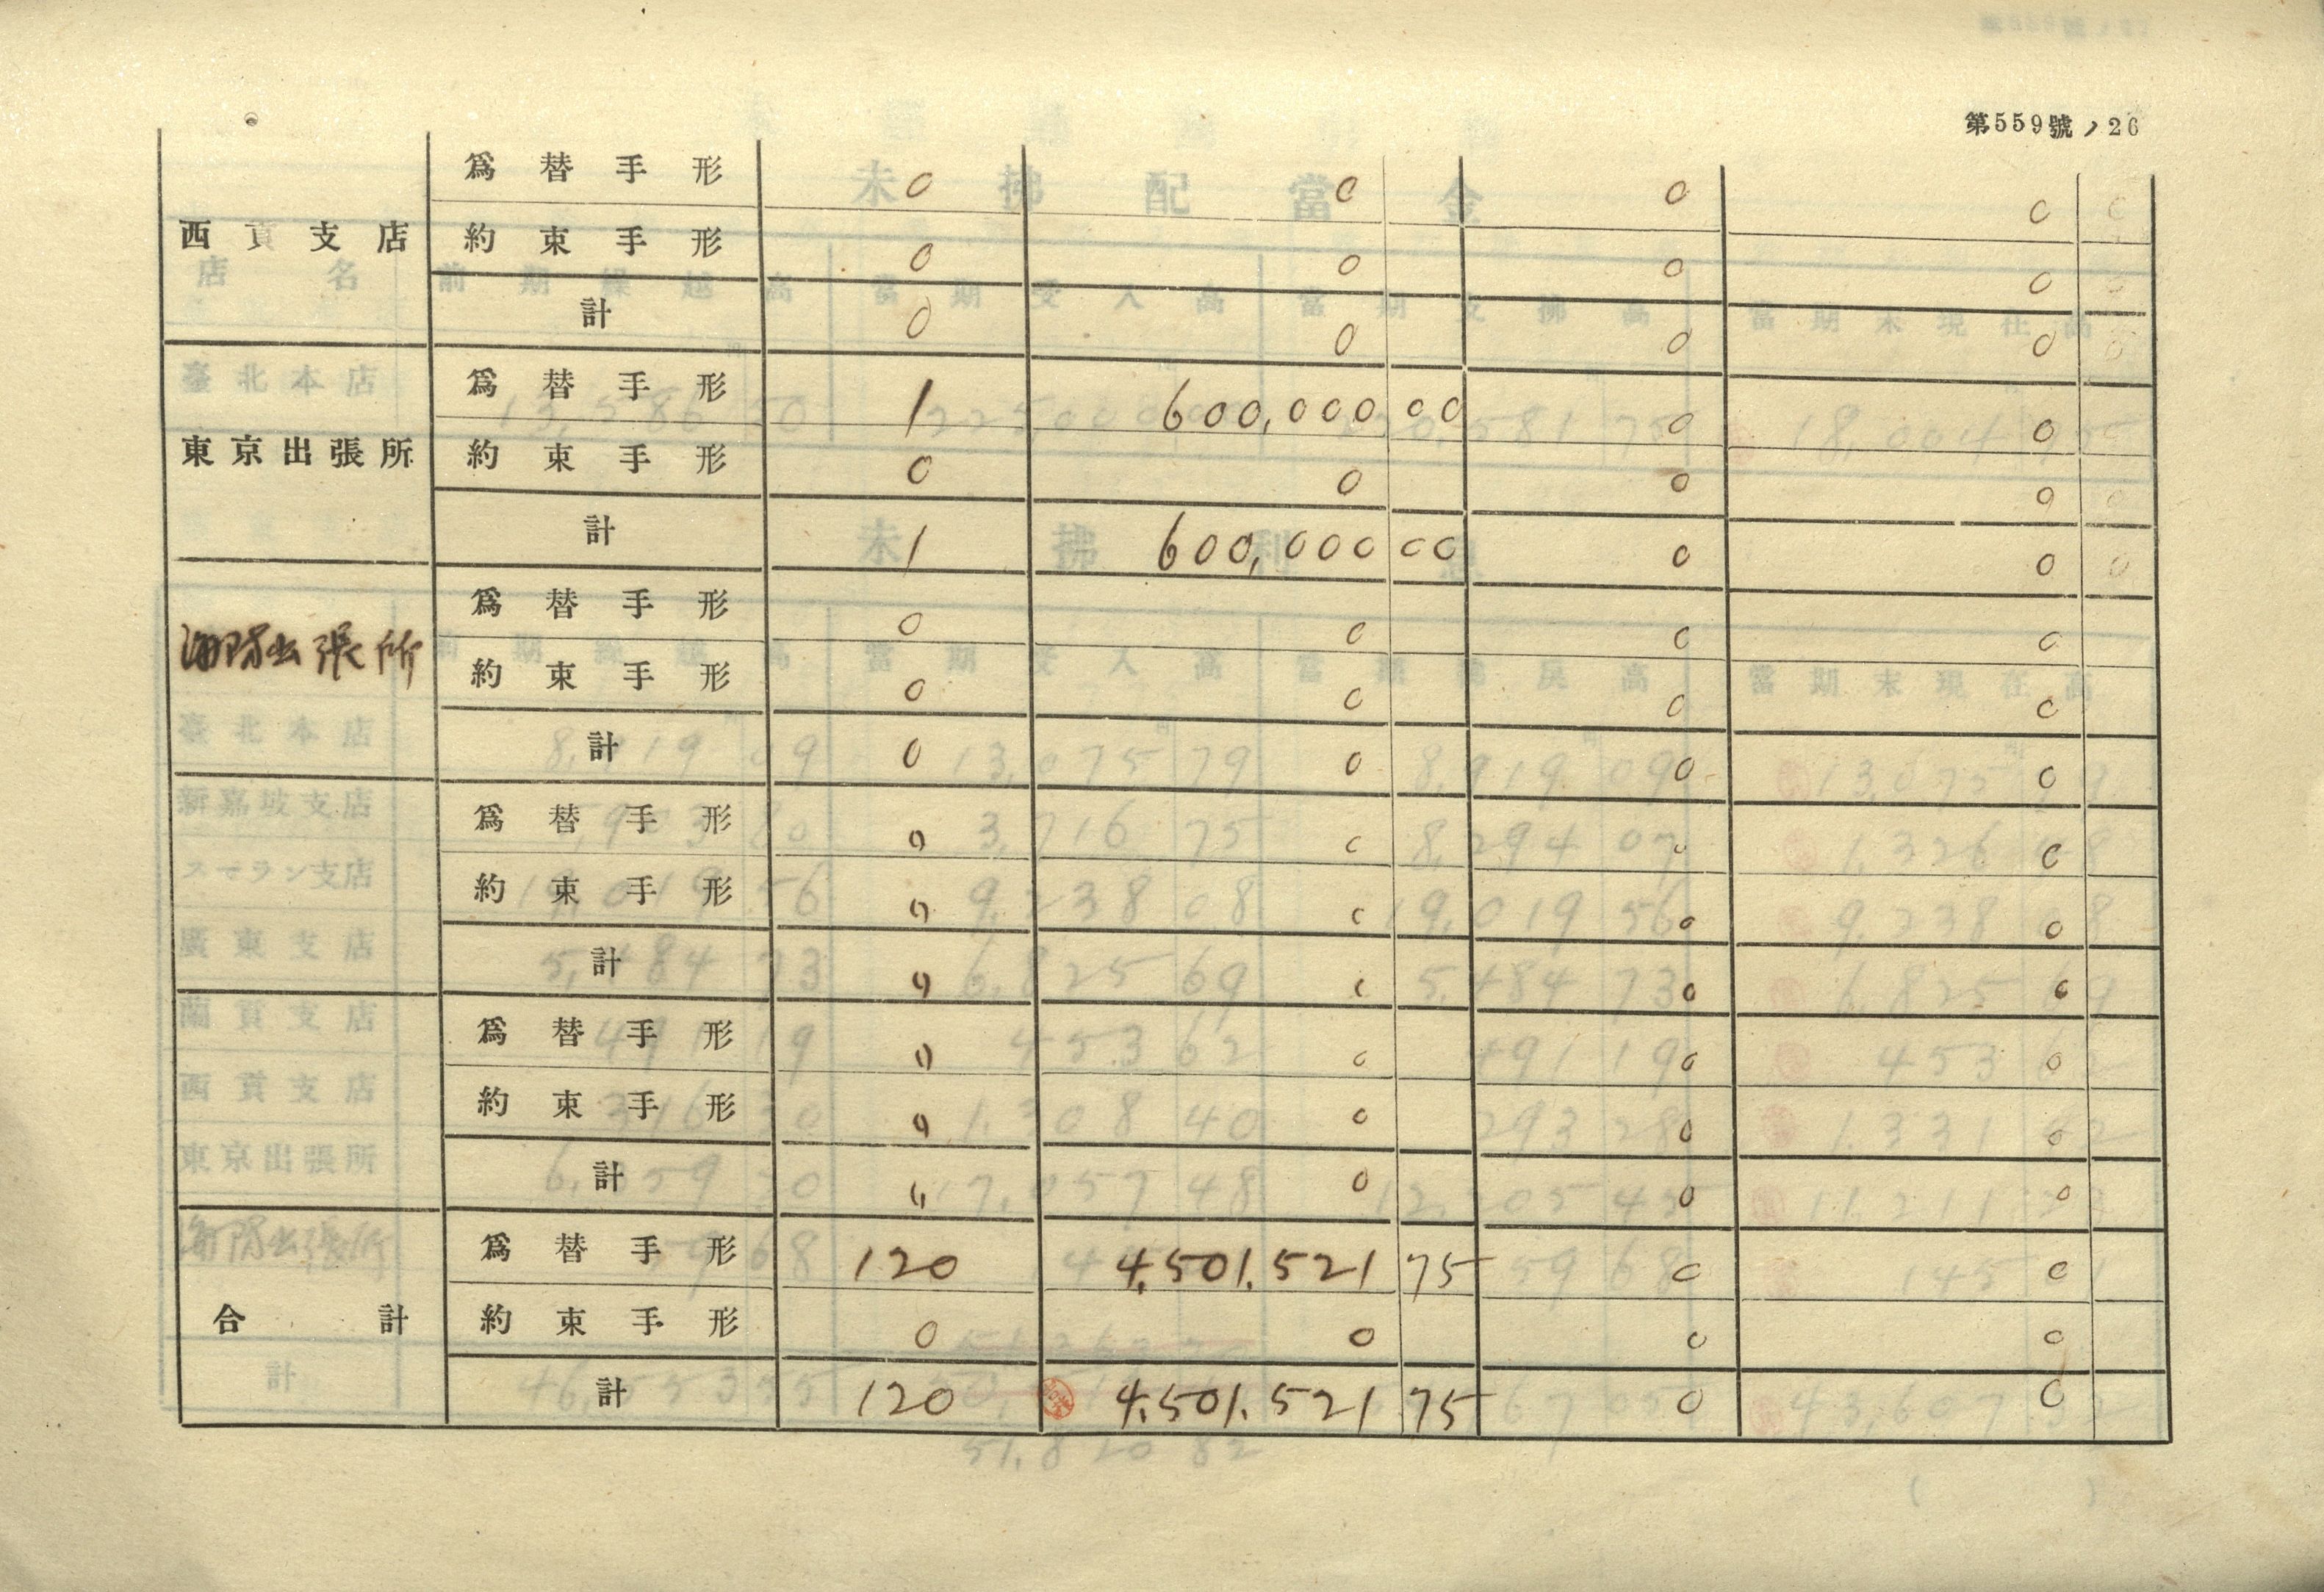 第559號ノ26
西貢支店 爲替手形 0 0 0 0 0
約束手形 0 0 0 0 0
計 0 0 0 0 0
東京出張所 爲替手形 1 600,000 00 0 0 0
約束手形 0 0 0 0 0
計 1 600,000 00 0 0 0
海防出張所 爲替手形 0 0 0 0
約束手形 0 0 0 0
計 0 0 0 0
爲替手形 0 0 0 0
約束手形 0 0 0 0
計 0 0 0 0
爲替手形 0 0 0 0
約束手形 0 0 0 0
計 0 0 0 0
合計 爲替手形 120 4,501,521 75 0 0
約束手形 0 0 0 0
計 120 4,501,521 75 0 0